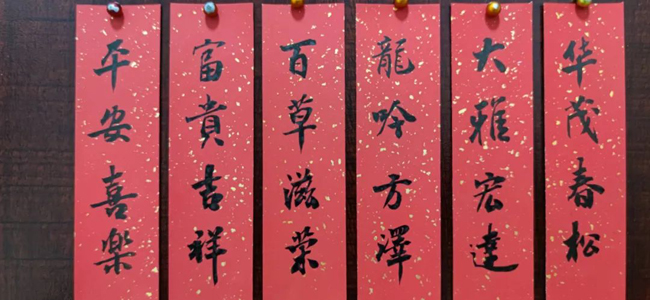 平安喜樂
富貴吉祥
百草滋荣
龍吟方澤
大雅宏達
华茂春松